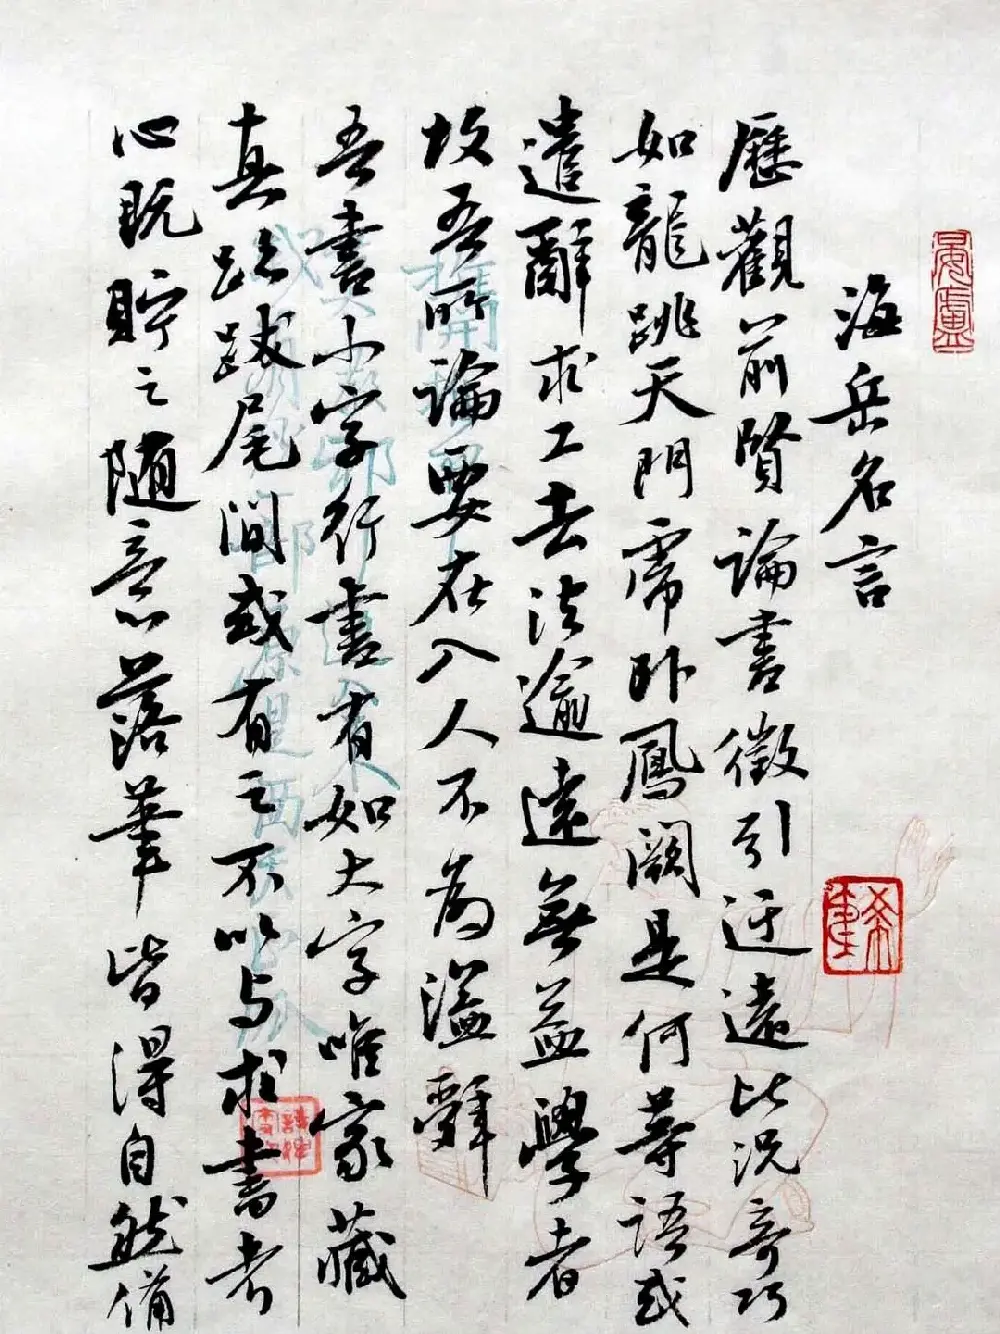 海岳名言
歷觀前賢論書徵引迂遠比況奇巧
如龍跳天門虎卧鳳闕是何等語或
遣辭求工去法逾遠無益學者
故吾所論要在入人不為溢辭
吾書小字行書有如大字唯家藏
真跡跋尾間或有之不以与求書者
心既貯之隨意落筆皆得自然備